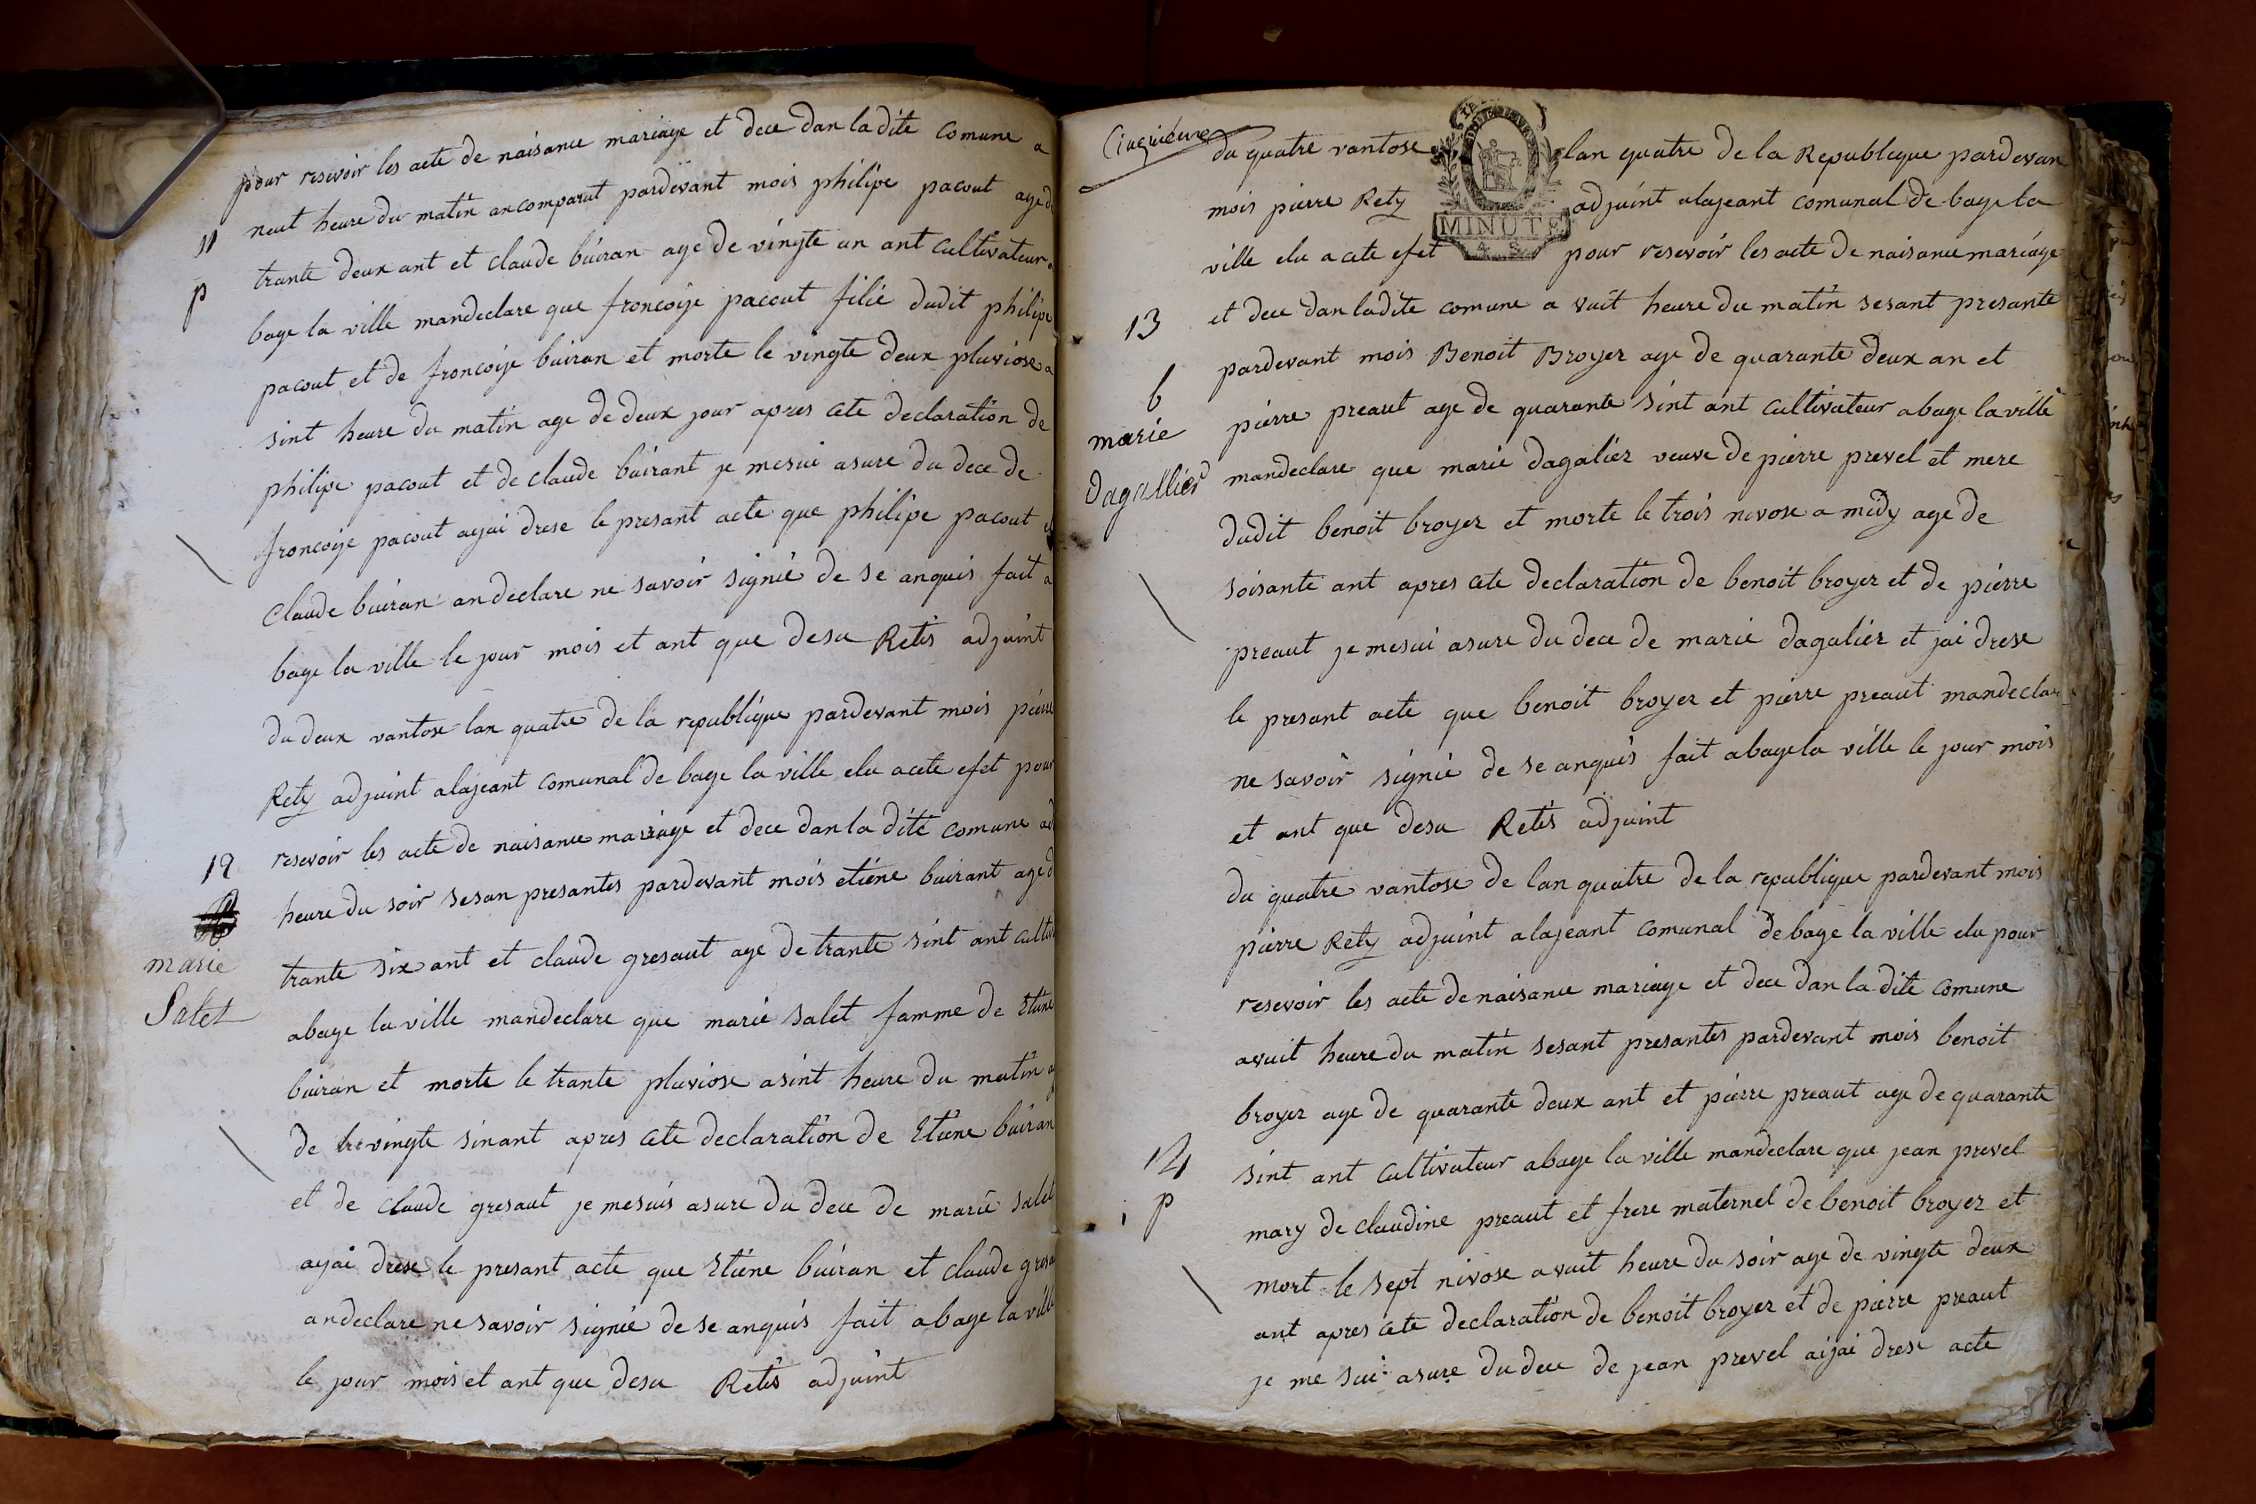 pour resevoir les acte de naisance mariage et dece dan la dite comune a
11 neut heure du matin ancomparut pardevant mois philipe pacout age de
p trante deux ant et claude buiran age de vingte un ant cultivateur a
bage la ville mandeclare que francoije pacout filie dudit philipe
pacout et de francoije buiran et morte le vingte deux pluviose a
sint heure du matin age de deux jour apres cete declaration de
philipe pacout et de claude buirant je mesui asure du dece de
francoije pacout ayai drese le presant acte que philipe pacout et
claude buiran andeclare ne savoir signié de se anquis fait a
bage la ville le jour mois et ant que desu Retis adjuint
du deux vantose lan quatre de la republique pardevant mois pierre
Rety adjuint alajeant comunal de bage la ville elu acete efet pour
12 resevoir les acte de naisance mariage et dece dan la dite comune
heure du soir sesan presantes pardevant mois etiéne buirant age de
trante six ant et claude gresaut age de trante sint ant cultiv
marie
Salet
abage la ville mandeclare que marie salet famme de Etiene
buiran et morte le trante pluviose asint heure du matin a
de trevingte sinant apres cete declaration de Etiene buiran
et de claude gresaut je mesuis asure du dece de marie salet
ayai drese le presant acte que Etiéne buiran et claude gresa
andeclare ne savoir signié de se anquis fait abage la ville
le jour mois et ant que desu Retis adjuint
du quatre vantose lan quatre de la Republique pardevan
mois pierre Rety adjuint alajeant comunal de bage la
MINUTE
ville elu acete efet pour resevoir les acte de naisance mariage
13 et dece dan ladite comune a vuit heure du matin sesant presante
pardevant mois Benoit Broyer age de quarante deux an et
b
marie
Dagallier
pierre preaut age de quarante sint ant cultivateur abage la ville
mandeclare que marie dagaliér veuve de pierre prevel et mere
dudit benoit broyer et morte le trois nivose a midy age de
soisante ant apres cete declaration de benoit broyer et de pierre
preaut je mesui asure du dece de marie dagaliér et jai drese
le presant acte que benoit broyer et pierre preaut mandeclare
ne savoir signié de se anquis fait abage la ville le jour mois
et ant que desu Retis adjuint
du quatre vantose de lan quatre de la republique pardevant mois
pierre Rety adjuint alajeant comunal de bage la ville elu pour
resevoir les acte de naisance mariage et dece dan la dite comune
avuit heure du matin sesant presantes pardevant mois benoit
broyer age de quarante deux ant et pierre preaut age de quarante
14 sint ant cultivateur abage la ville mandeclare que jean prevel
p mary de claudine preaut et frere maternel de benoit broyer et
mort le sept nivose avuit heure du soir age de vingte deux
ant apres cete declaration de benoit broyer et de pierre preaut
je me sui asure du dece de jean prevel aijai drese acte